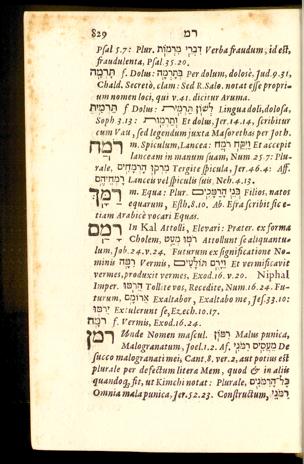 829 רמ
Psal 5.7: Plur. דברי מרמות Verba fraudum, id est,
fraudulenta, Psal. 35.20.
תרמה f. Dolus: בתרמה Per dolum, dolosè. Jud. 9.31,
Chald. Secretò, clam: Sed R. Salo. notat esse propri-
um nomen loci, qui v. 41. dicitur Aruma.
תרמית f. Dolus: לשון תרמית Lingua doli, dolosa,
Soph 3.13: ותרמות Et dolus, Jer. 14.14, scribitur
cum Vau, sed legendum juxta Masorethas per Joth.
רמח m. Spiculum, Lancea: ויקח רמח Et accepit
lanceam in manum suam, Num 25.7: Plu-
rale, מרקו הרמחים Tergite spicula, Jer. 46.4: Aff.
רמחיהם Lanceis vel spiculis suis, Neh. 4.13.
רמך m. Equa: Plur. בני הרמכים Filios, natos
equarum, Esth. 8.10. Ab Esra scribit sic e-
tiam Arabicè vocari Equas.
רמם In Kal Attolli, Elevari: Prater. ex forma
Cholem, רמו מעט Attollunt se aliquantu-
lum, Job. 24. v. 24. Futurum ex significatione No-
minis רמה Vermis, וירם תולעים Et vermificavit
vermes, produxit vermes, Exod. 16. v. 20. Niphal
Imper. הרמו Tollite vos, Recedite, Num. 16.24. Fu-
turum, ארומם Exaltabor, Exaltabo me, Jes. 33.10:
ירמו Extulerunt se, Ezech. 10.17.
רמה f. Vermis, Exod. 16.24.
רמן Unde Nomen mascul. רמון Malus punica,
Malogranatum, Joel. 1.2. Af. מעסיס רמני De
succo malogranati mei, Cant. 8. ver. 2, aut potius est
plurale per defectum litera Mem, quod & in aliis
quandoq; fit, ut Kimchi notat: Plurale,
כל הרמנים Omnia mala punica, Jer. 52.23. Constructum,
רמני,